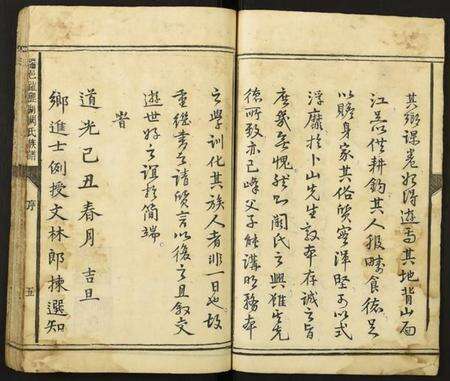 其鄉課卷如得遊焉其地背山面
江足以供耕釣其人服疇食德足
以贍身家其俗質實渾堅可以式
浮靡於卜山先生敦本存誠之旨
庶幾無愧然則闕氏之興雖先
德所致亦已峰父子能講明務本
之學訓化其族人者非一日也故
重繼書之請質言以復之且敘交
遊世好之誼於簡端
旹
道光己丑春月吉旦
鄉進士例授文林郎揀選知
氏族譜
序
五